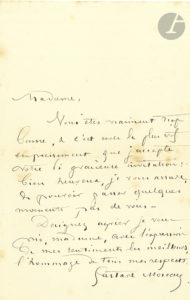 Madame,
Vous êtes vraiment trop
bonne, & c'est avec le plus vif
empressement que j'accepte
votre si gracieuse invitation :
bien heureux, je vous assure,
de pouvoir passer quelques
moments près de vous –
Daignez agréer je vous
prie, madame, avec l'expression
de mes sentiments les meilleurs
l'hommage de tous mes respects.
Gustave Moreau